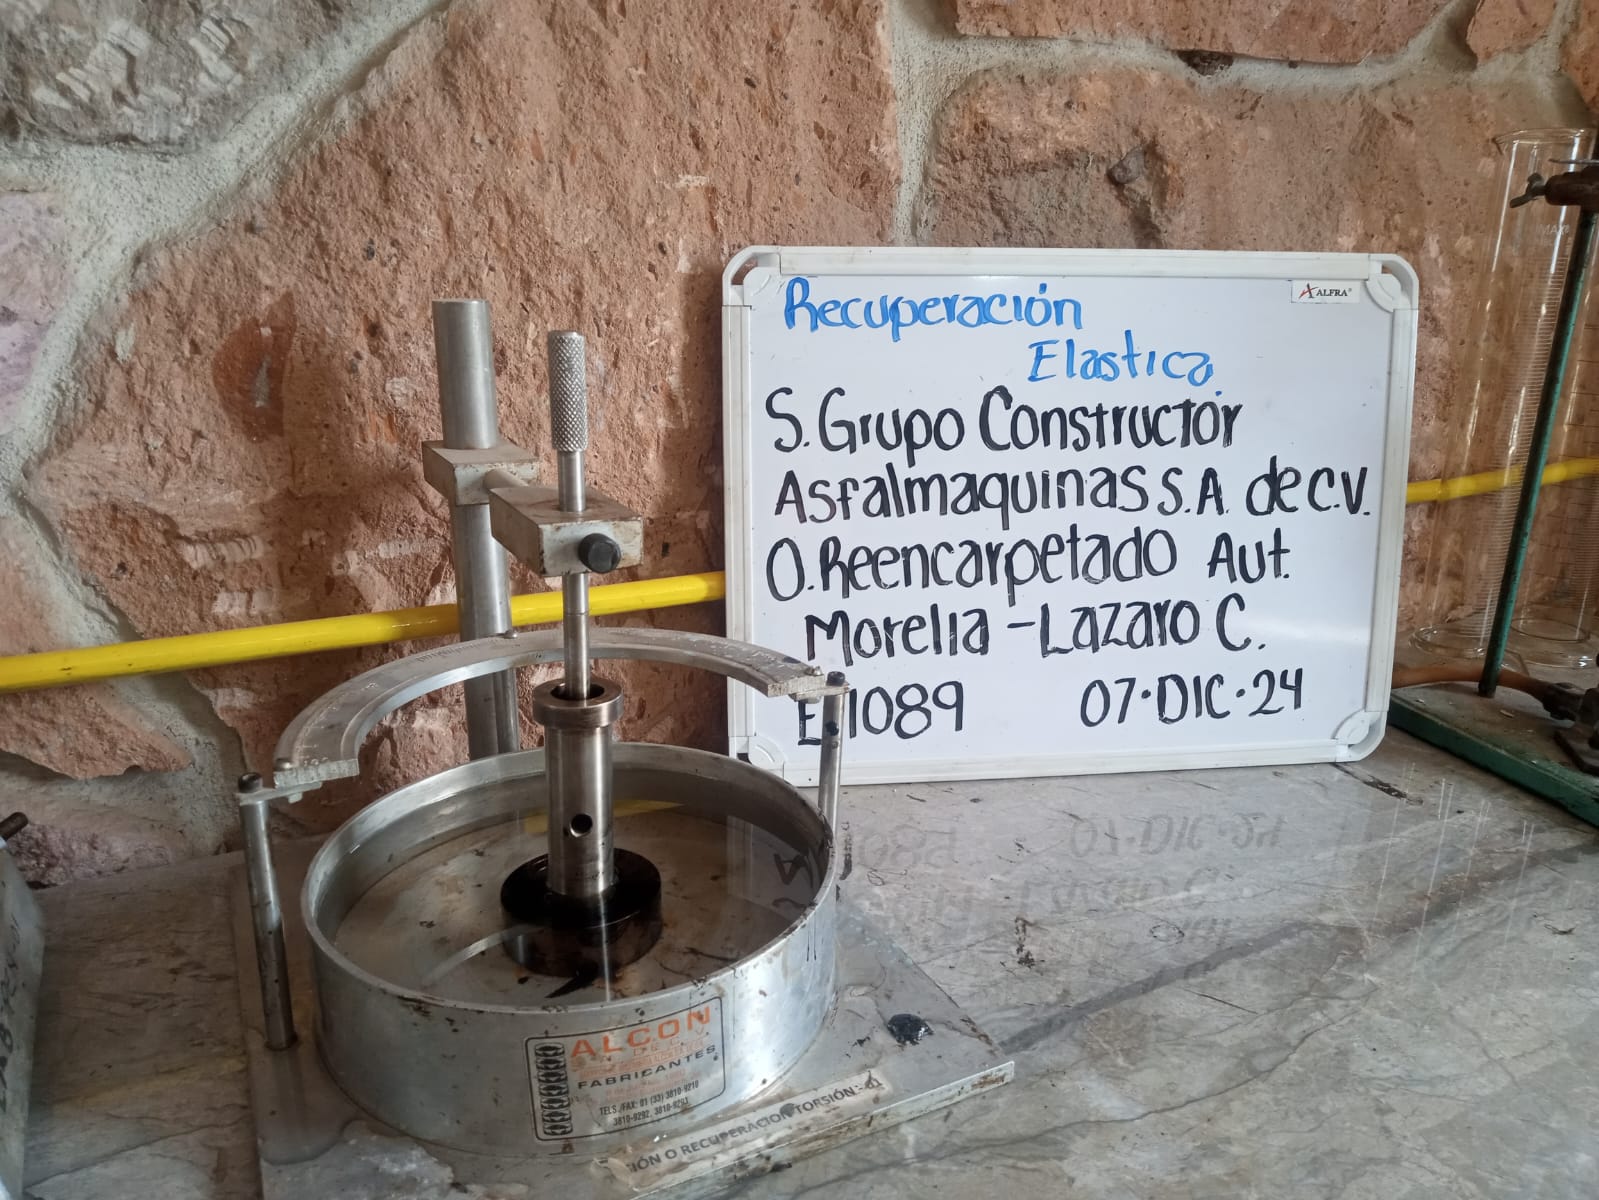 ALFRA®
Recuperación
Elastica
S. Grupo Constructor
Asfalmaquinas S.A. de C.V.
O. Reencarpetado Aut.
Morelia - Lazaro C.
E 1089 07·DIC·24
ALCON
FABRICANTES
TELS./FAX: 01 (33) 3810-9210
3810-9292, 3810-9293
IÓN O RECUPERACION TORSIÓN